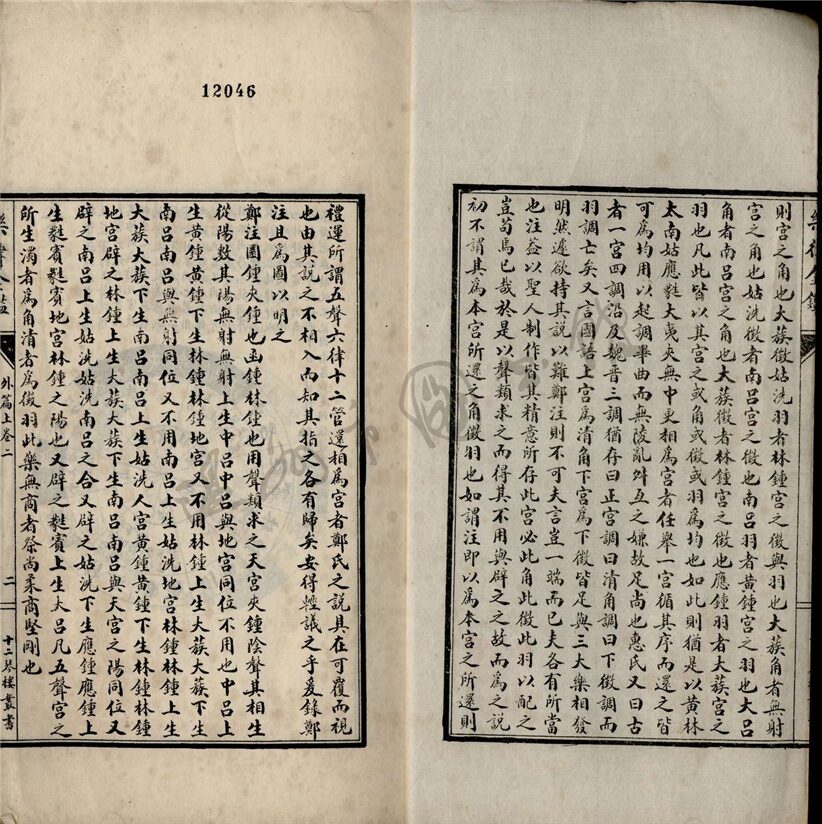 則宮之角也大蔟徵姑洗羽者林鍾宮之徵與羽也大蔟角者無射
宮之角也姑洗徵者南呂宮之徵也南呂羽者黃鍾宮之羽也大呂
角者南呂宮之角也大蔟徵者林鍾宮之徵也應鍾羽者大蔟宮之
羽也凡此皆以其宮之或角或徵或羽爲均也如此則猶是以黃林
太南姑應蕤大夷夾無中更相爲宮者任舉一宮循其序而還之皆
可爲均用以起調畢曲而無陵亂舛互之嫌故足尚也惠氏又曰古
者一宮四調沿及魏晋三調猶存曰正宮調曰清角調曰下徵調而
羽調亡矣又言國語上宮爲清角下宮爲下徵皆足與三大樂相發
明然遽欲持其說以難鄭注則不可夫言豈一端而已夫各有所當
也注益以聖人制作皆其精意所存此宮必此角此徵此羽以配之
豈苟焉已哉於是以聲類求之而得其不用與辟之之故而爲之說
初不謂其爲本宮所還之角徵羽也如謂注即以爲本宮之所還則
12046
禮運所謂五聲六律十二管還相爲宮者鄭氏之說具在可覆而視
也由其說之不相入而知其指之各有歸矣安得輕議之乎爰錄鄭
注且爲圖以明之
鄭注圜鍾夾鍾也函鍾林鍾也用聲類求之天宮夾鍾陰聲其相生
從陽數其陽無射無射上生中呂中呂與地宮同位不用也中呂上
生黃鍾黃鍾下生林鍾林鍾地宮又不用林鍾上生大蔟大蔟下生
南呂南呂與無射同位又不用南呂上生姑洗地宮林鍾林鍾上生
大蔟大蔟下生南呂南呂上生姑洗人宮黃鍾黃鍾下生林鍾林鍾
地宮辟之林鍾上生大蔟大蔟下生南呂南呂與天宮之陽同位又
辟之南呂上生姑洗姑洗南呂之合又辟之姑洗下生應鍾應鍾上
生蕤賓蕤賓地宮林鍾之陽也又辟之蕤賓上生大呂凡五聲宮之
所生濁者爲角清者爲徵羽此樂無商者祭尚柔商堅剛也
外篇上卷二
二
十二琴樓叢書